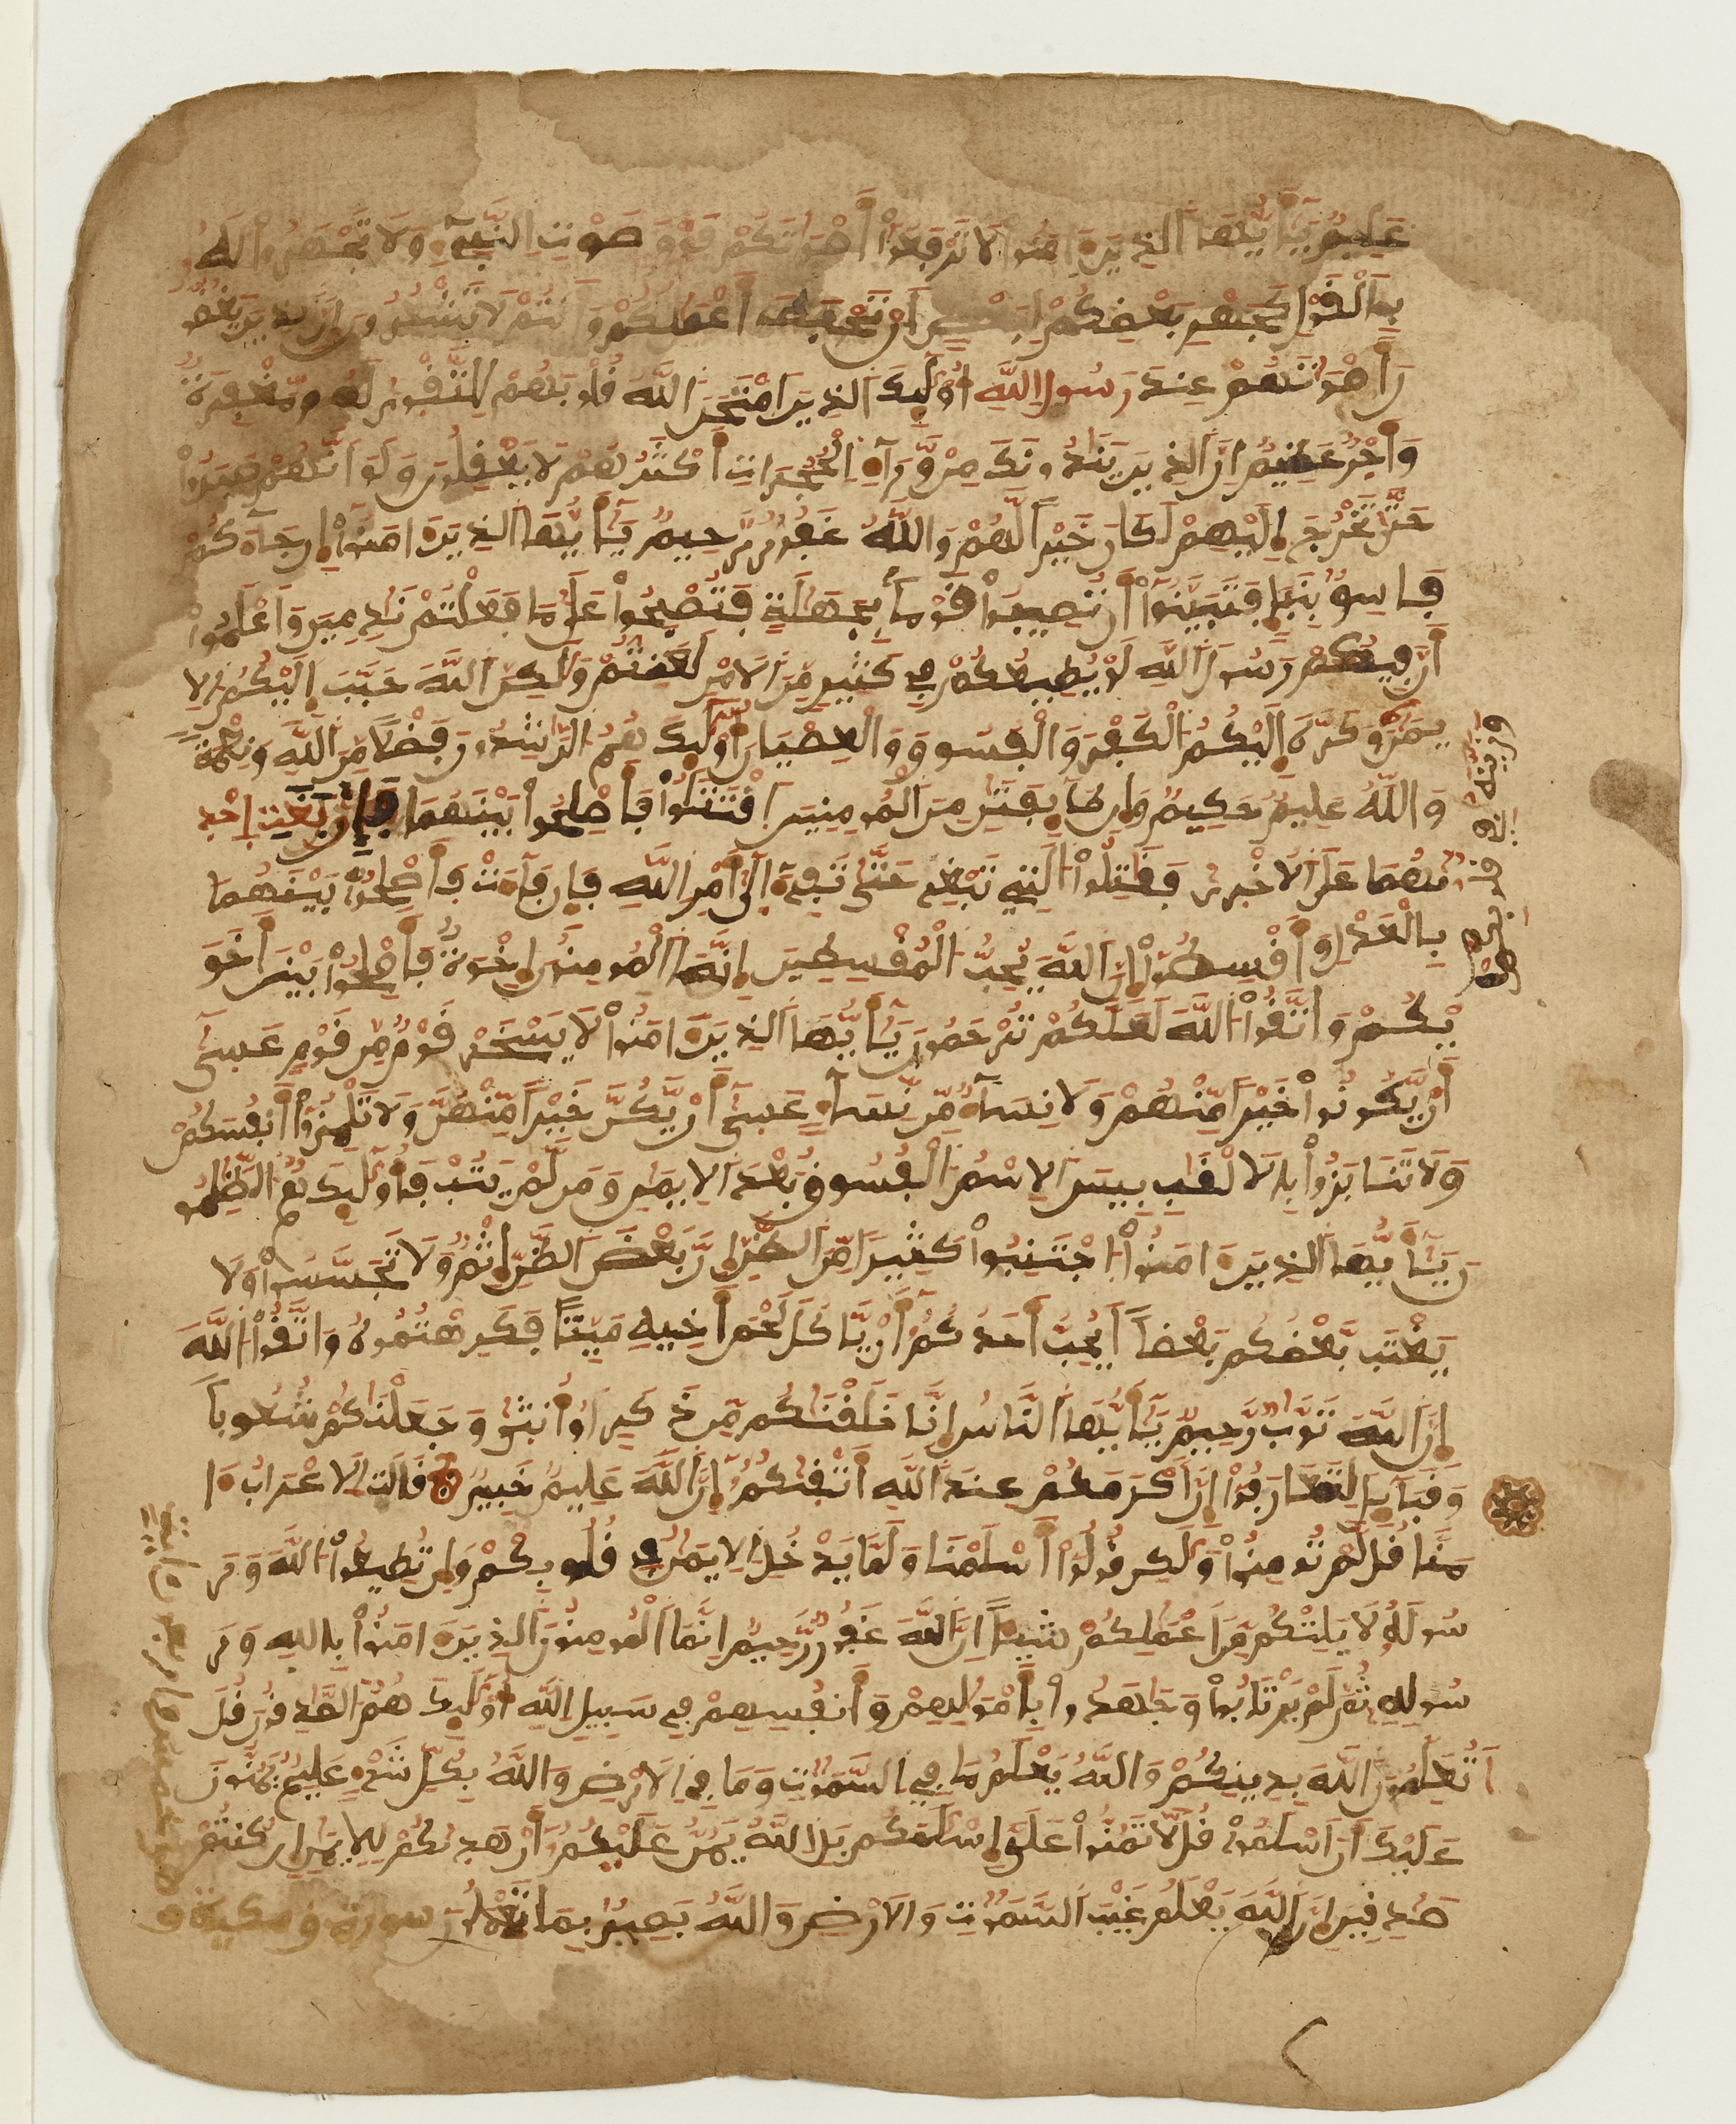 عَلِيمٌ يَٰأَيُّهَا ٱلذِينَ ءَامَنُوا لَا تَرْفَعُوٓاْ أَصْوَٰتَكُمْ فَوْقَ صَوْتِ ٱلنَّبِيٓءِ وَلَا تَجْهَرُواْ لَهُۥ
بِٱلْقَوْلِ كَجَهْرِ بَعْضِكُمْ لِبَعْضٍ أَن تَحْبَطَ أَعْمَٰلُكُمْ وَأَنتُمْ لَا تَشْعُرُونَ إِنَّ ٱلذِينَ يَغُضُّو
نَ أَصْوَٰتَهُمْ عِندَ رَسُولِ ٱللَّهِ أُوْلَٰٓئِكَ ٱلذِينَ ٱمْتَحَنَ ٱللَّهُ قُلُوبَهُمْ لِلتَّقْوَىٰ لَهُم مَّغْفِرَةٌ
وَأَجْرٌ عَظِيمٌ إِنَّ ٱلذِينَ يُنَادُونَكَ مِنْ وَّرَآءِ ٱلْحُجُرَٰتِ أَكْثَرُهُمْ لَا يَعْقِلُونَ وَلَوَ ٱنَّهُمْ صَبَرُواْ
حَتَّىٰ تَخْرُجَ إِلَيْهِمْ لَكَانَ خَيْراً لَّهُمْ وَٱللَّهُ غَفُورٌ رَّحِيمٌ يَٰٓأَيُّهَا ٱلذِينَ ءَامَنُوٓاْ إِن جَآءَكُمْ
فَاسِقٌ بِنَبَإٍ فَتَبَيَّنُوٓاْ أَن تُصِيبُواْ قَوْماً بِجَهَٰلَةٍ فَتُصْبِحُواْ عَلَىٰ مَا فَعَلْتُمْ نَٰدِمِينَ وَٱعْلَمُوٓاْ
أَنَّ فِيكُمْ رَسُولَ ٱللَّهِ لَوْ يُطِيعُكُمْ فِي كَثِيرٍ مِّنَ ٱلَامْرِ لَعَنِتُّمْ وَلَٰكِنَّ ٱللَّهَ حَبَّبَ إِلَيْكُمُ ٱلِا
يمَٰنَ وَكَرَّهَ إِلَيْكُمُ ٱلْكُفْرَ وَٱلْفُسُوقَ وَٱلْعِصْيَانَ أُوْلَٰٓئِكَ هُمُ ٱلرَّٰشِدُونَ فَضْلًا مِّنَ ٱللَّهِ وَنِعْمَةً
وَٱللَّهُ عَلِيمٌ حَكِيمٌ وَإِن طَآئِفَتَٰنِ مِنَ ٱلْمُومِنِينَ ٱقْتَتَلُواْ فَأَصْلِحُواْ بَيْنَهُمَا فَإِن بَغَتِ احْدَ
ىٰهُمَا عَلَى ٱلُاخْرَىٰ فَقَٰتِلُواْ ٱلتِي تَبْغِي حَتَّىٰ تَفِيٓءَ اِلَىٰٓ أَمْرِ ٱللَّهِ فَإِن فَآءَتْ فَأَصْلِحُواْ بَيْنَهُمَا
بِٱلْعَدْلِ وَأَقْسِطُوٓاْ إِنَّ ٱللَّهَ يُحِبُّ ٱلْمُقْسِطِينَ إِنَّمَا ٱلْمُومِنُونَ إِخْوَةٌ فَأَصْلِحُواْ بَيْنَ أَخَوَ
يْكُمْ وَٱتَّقُواْ ٱللَّهَ لَعَلَّكُمْ تُرْحَمُونَ يَٰٓأَيُّهَا ٱلذِينَ ءَامَنُواْ لَا يَسْخَرْ قَوْمٌ مِّن قَوْمٍ عَسَىٰٓ
أَنْ يَّكُونُواْ خَيْراً مِّنْهُمْ وَلَا نِسَآءٌ مِّن نِّسَآءٍ عَسَىٰٓ أَنْ يَّكُنَّ خَيْراً مِّنْهُنَّ وَلَا تَلْمِزُوٓاْ أَنفُسَكُمْ
وَلَا تَنَابَزُواْ بِٱلَالْقَٰبِ بِيسَ ٱلِاسْمُ ٱلْفُسُوقُ بَعْدَ ٱلِايمَٰنِ وَمَن لَّمْ يَتُبْ فَأُوْلَٰٓئِكَ هُمُ ٱلظَّٰلِمُو
نَ يَٰٓأَيُّهَا ٱلذِينَ ءَامَنُواْ ٱجْتَنِبُواْ كَثِيراً مِّنَ ٱلظَّنِّ إِنَّ بَعْضَ ٱلظَّنِّ إِثْمٌ وَلَا تَجَسَّسُواْ وَلَا
يَغْتَب بَّعْضُكُم بَعْضاً أَيُحِبُّ أَحَدُكُمُ أَنْ يَّاكُلَ لَحْمَ أَخِيهِ مَيِّتاً فَكَرِهْتُمُوهُ وَٱتَّقُواْ ٱللَّهَ
إِنَّ ٱللَّهَ تَوَّابٌ رَّحِيمٌ يَٰٓأَيُّهَا ٱلنَّاسُ إِنَّا خَلَقْنَٰكُم مِّن ذَكَرٍ اَوُ انثَىٰ وَجَعَلْنَٰكُمْ شُعُوباً
وَقَبَآئِلَ لِتَعَارَفُوٓاْ إِنَّ أَكْرَمَكُمْ عِندَ ٱللَّهِ أَتْقَىٰكُمُ إِنَّ ٱللَّهَ عَلِيمٌ خَبِيرٌ قَالَتِ ٱلَاعْرَابُ ءَا
مَنَّا قُل لَّمْ تُومِنُواْ وَلَٰكِن قُولُوٓاْ أَسْلَمْنَا وَلَمَّا يَدْخُلِ ٱلِايمَٰنُ فِي قُلُوبِكُمْ وَإِن تُطِيعُواْ ٱللَّهَ وَرَ
سُولَهُۥ لَا يَلِتْكُم مِّنَ اَعْمَٰلِكُمْ شَيْئاً اِنَّ ٱللَّهَ غَفُورٌ رَّحِيمٌ اِنَّمَا ٱلْمُومِنُونَ ٱلذِينَ ءَامَنُواْ بِٱللَّهِ وَرَ
سُولِهِ ثُمَّ لَمْ يَرْتَابُواْ وَجَٰهَدُواْ بِأَمْوَٰلِهِمْ وَأَنفُسِهِمْ فِي سَبِيلِ ٱللَّهِ أُوْلَٰٓئِكَ هُمُ ٱلصَّٰدِقُونَ قُلَ
اَتُعَلِّمُونَ ٱللَّهَ بِدِينِكُمْ وَٱللَّهُ يَعْلَمُ مَا فِي ٱلسَّمَٰوَٰتِ وَمَا فِي ٱلَارْضِ وَٱللَّهُ بِكُلِّ شَيْءٍ عَلِيمٌ يَمُنُّونَ
عَلَيْكَ أَنَ اَسْلَمُواْ قُل لَّا تَمُنُّواْ عَلَيَّ إِسْلَٰمَكُم بَلِ ٱللَّهُ يَمُنُّ عَلَيْكُمُ أَنْ هَدَىٰكُمْ لِلِايمَٰنِ إِن كُنتُمْ
صَٰدِقِينَ إِنَّ ٱللَّهَ يَعْلَمُ غَيْبَ ٱلسَّمَٰوَٰتِ وَٱلَارْضِ وَٱللَّهُ بَصِيرٌ بِمَا تَعْمَلُونَ سورة ق مكية و
وزينه